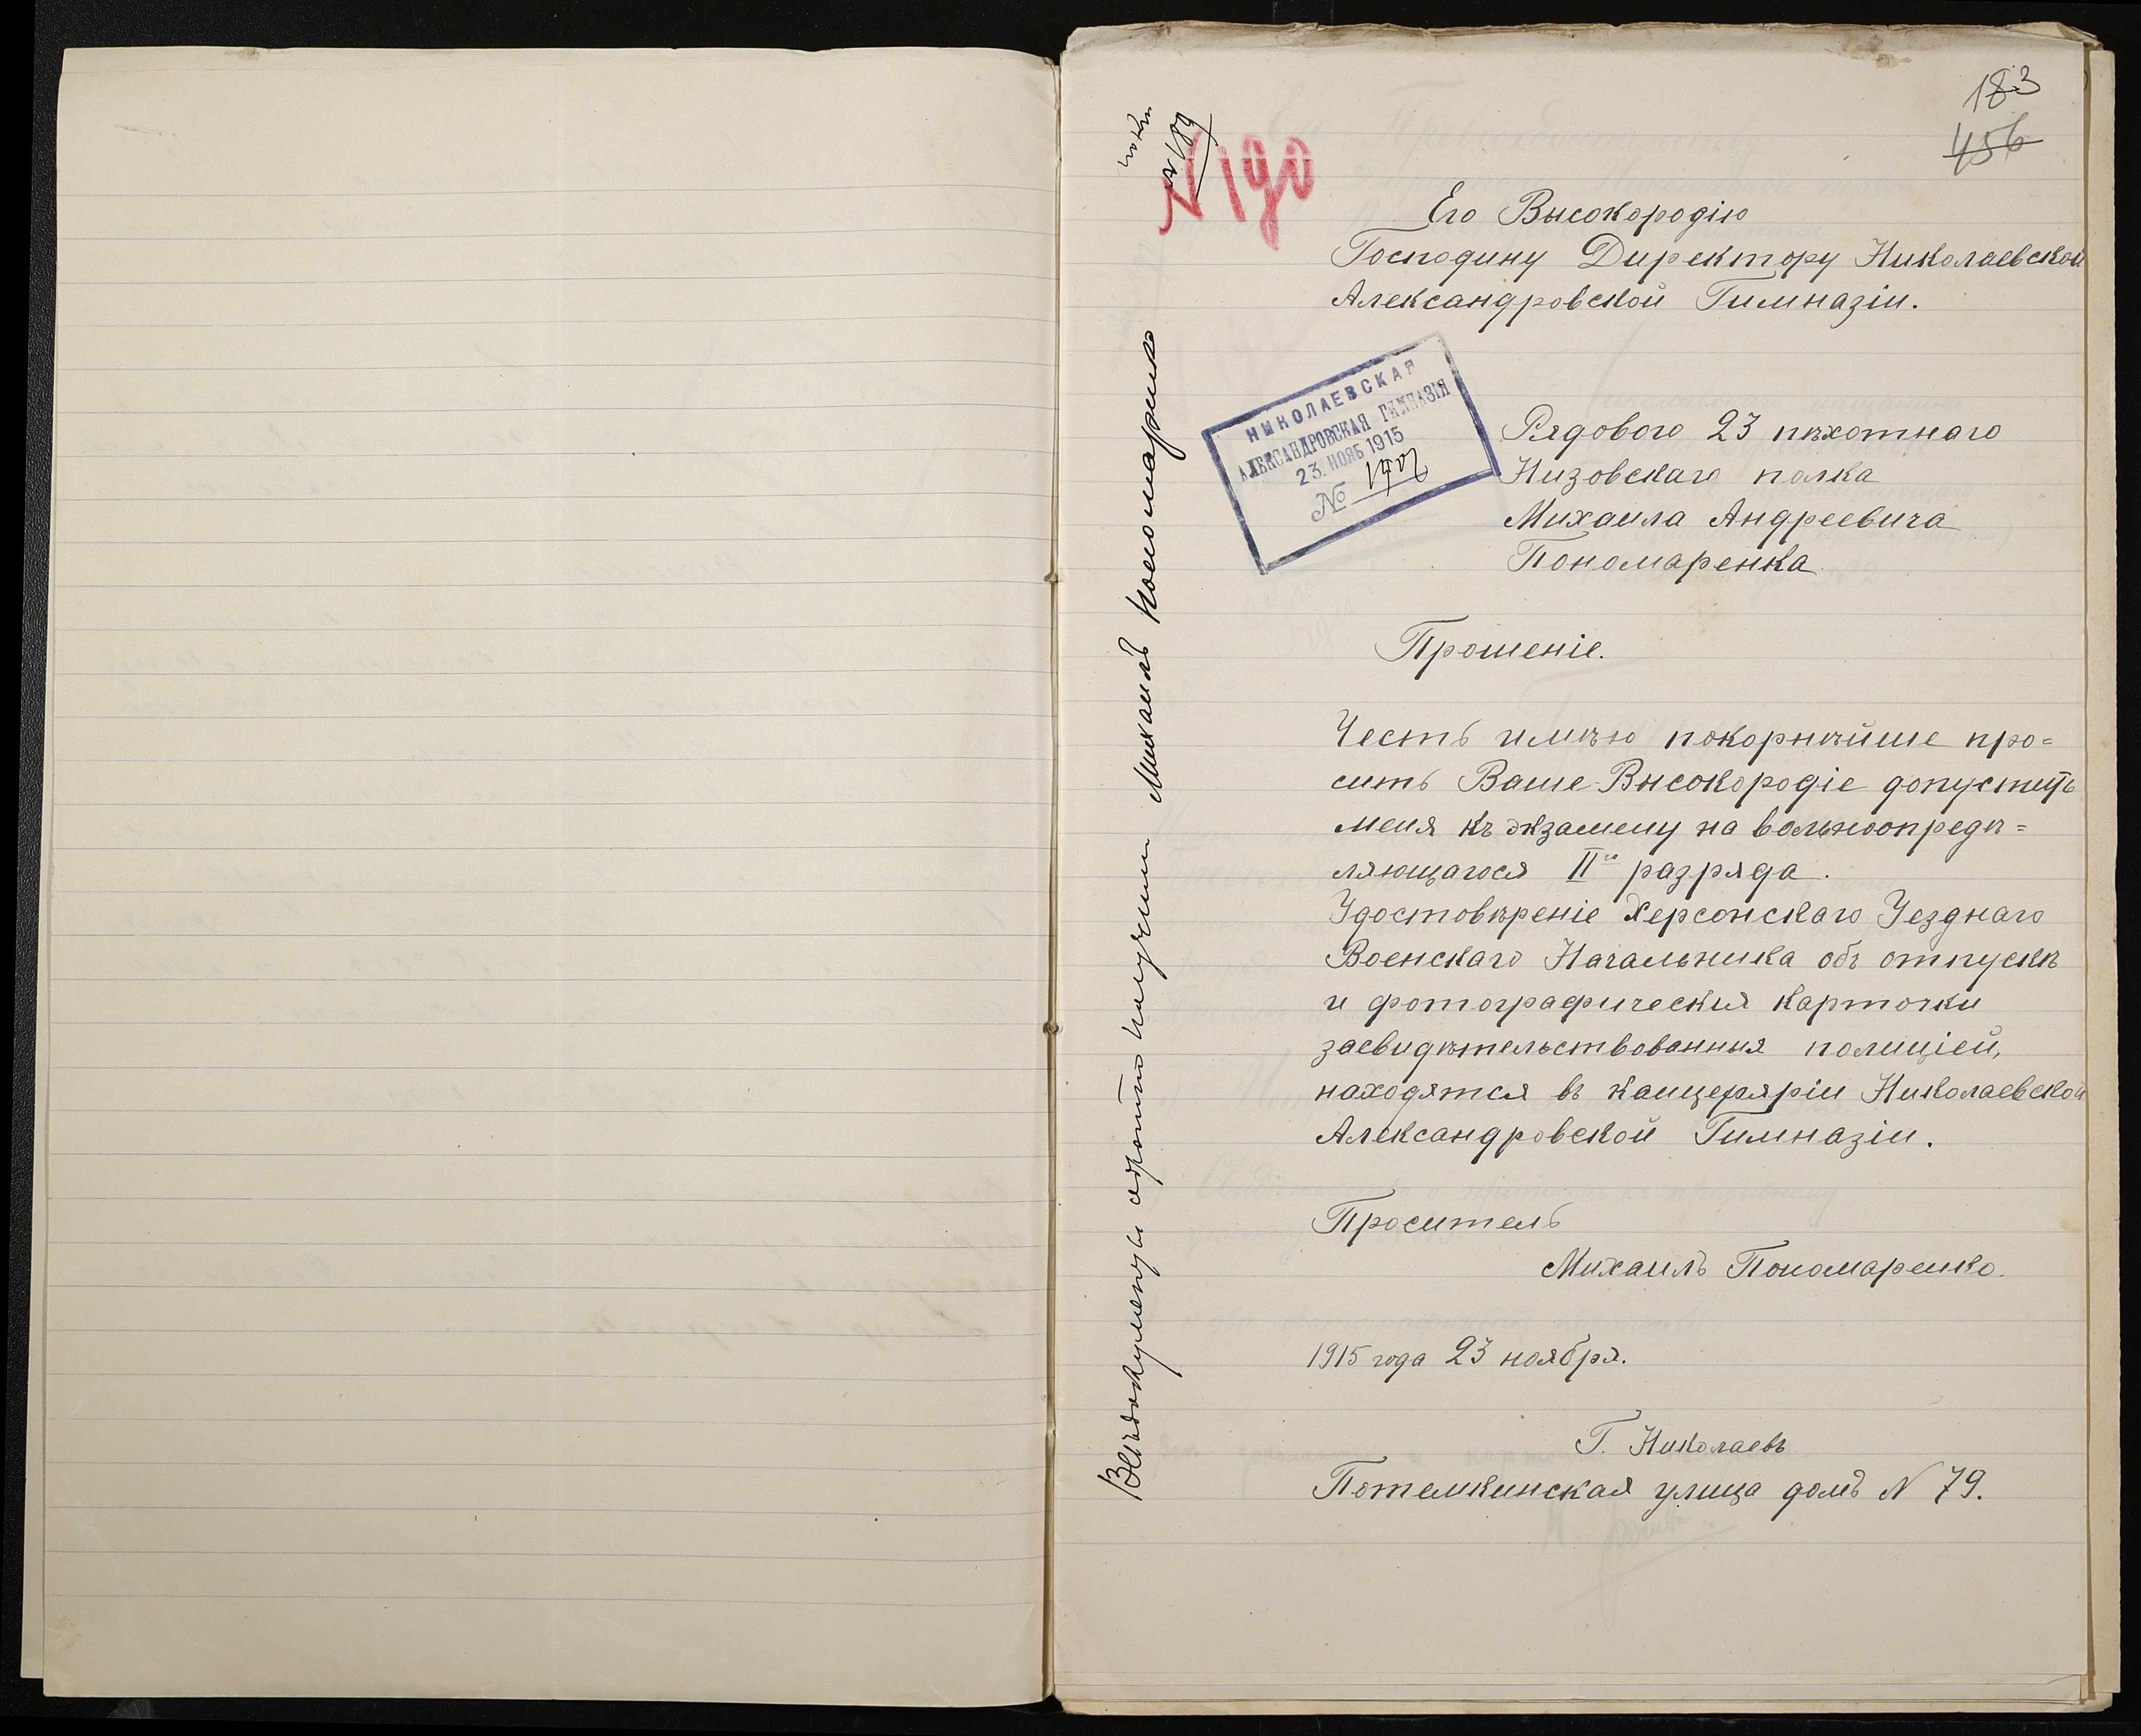 183
456
№ 189
№ 190
Его Высокородію
Господину Директору Николаевской
Александровской Гимназіи.
НИКОЛАЕВСКАЯ
АЛЕКСАНДРОВСКАЯ ГИМНАЗІЯ
23. НОЯБ 1915
№
Рядового 23 пѣхотнаго
Низовскаго полка
Михаила Андреевича
Пономаренка
Прошеніе.
Честь имѣю покорнѣйше про=
сить Ваше Высокородіе допустить
меня къ экзамену на вольноопредѣ=
ляющагося II го разряда.
Удостовѣреніе Херсонскаго Уезднаго
Военскаго Начальника объ отпускѣ
и фотографическия карточки
засвидѣтельствованныя полиціей,
находятся въ канцеляріи Николаевской
Александровской Гимназіи.
Проситель
Михаилъ Пономаренко.
1915 года 23 ноября.
Г. Николаевъ
Потемкинская улица домъ N 79.
Всѣ документы обратно получилъ Михаилъ Пономаренко